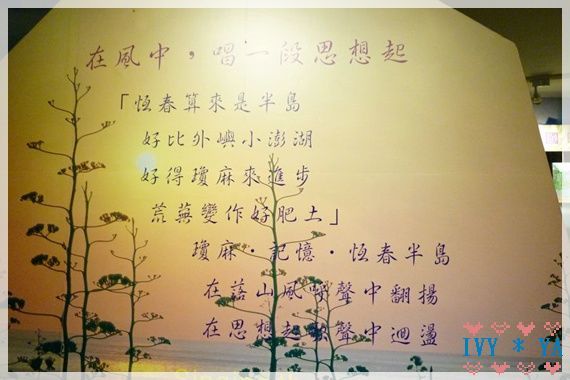 在風中，唱一段思想起
「恆春算來是半島
好比外嶼小澎湖
好得瓊麻來進步
荒蕪變作好肥土」
瓊麻・記憶・恆春半島
在落山風呼聲中翻揚
在思想起歌聲中迴盪
IVY * YA